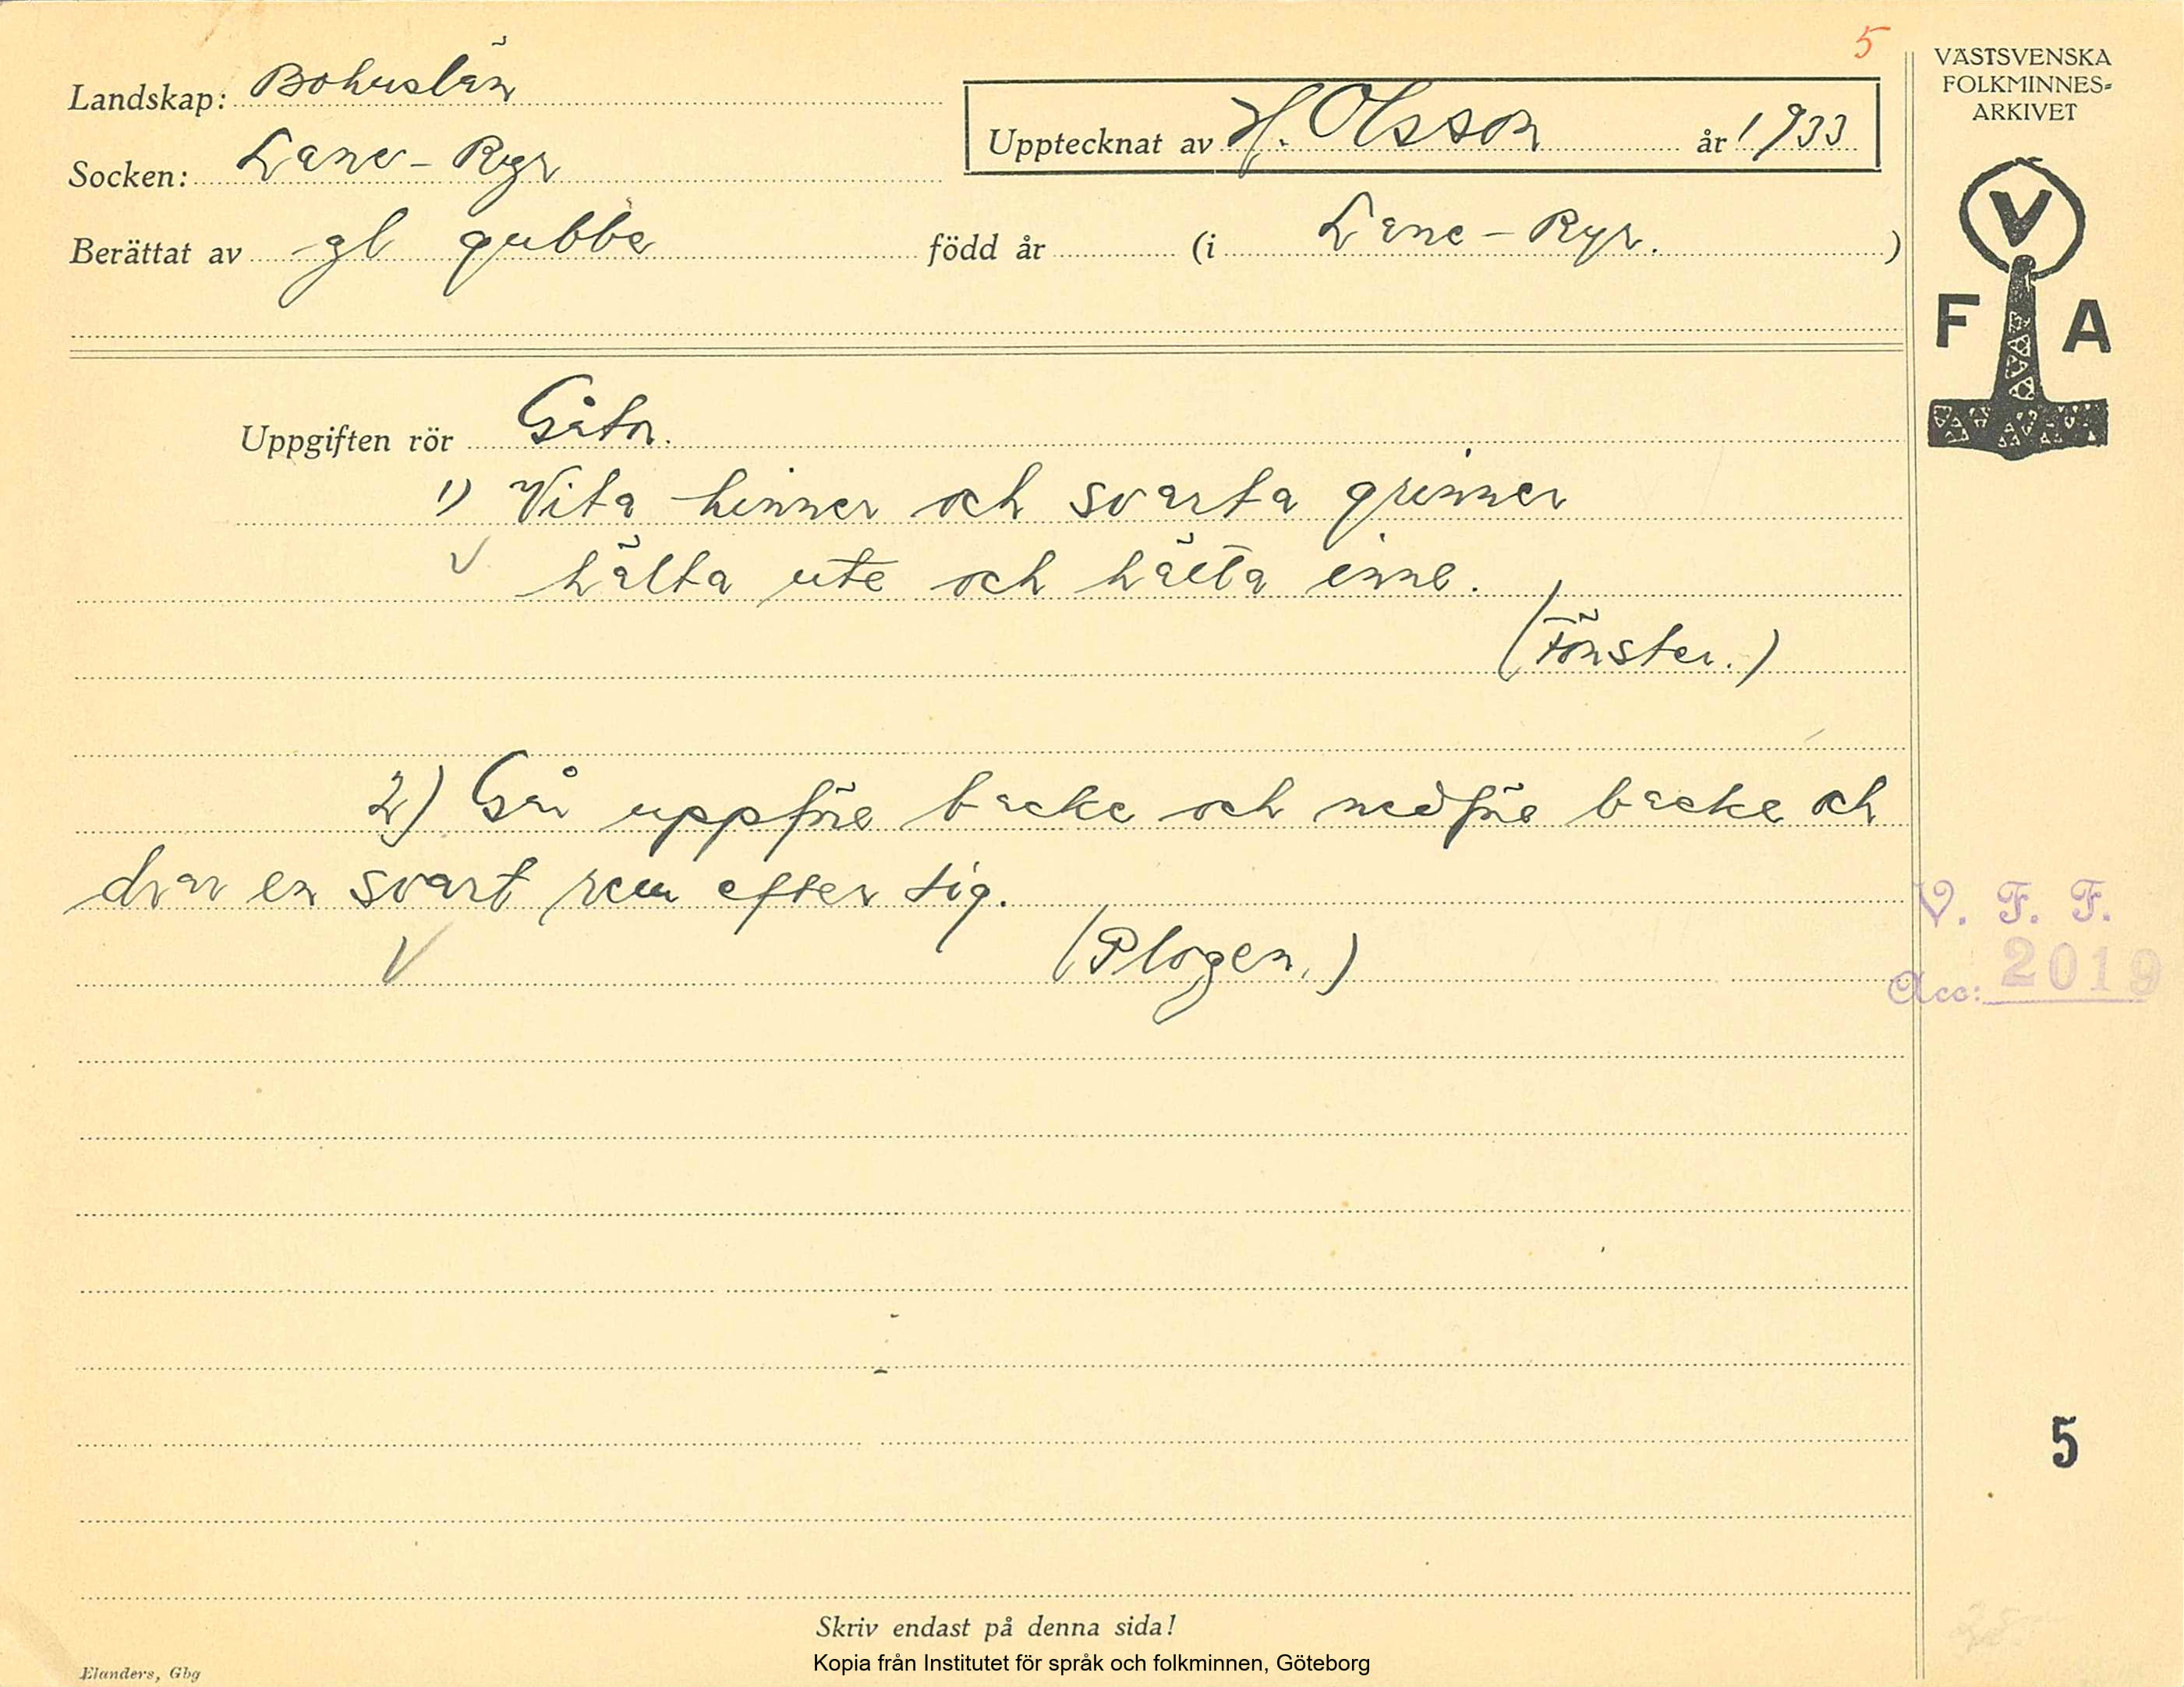 5
VÄSTSVENSKA
FOLKMINNES-
ARKIVET
Landskap: Bohuslän
Upptecknat av H. Olsson år 1933
Socken: Lane-Ryr
Berättat av gl gubbe född år (i Lane-Ryr. )
V
F A
Uppgiften rör Gåtor.
1) Vita hinner och svarta grinner
hälta ute och hälta inne.
(Fönster.)
2) Går uppför backe och nedför backe och
drar en svart rem efter sig.
(Plogen.)
V. F. F.
Acc: 2019
5
Skriv endast på denna sida!
Kopia från Institutet för språk och folkminnen, Göteborg
Elanders, Gbg